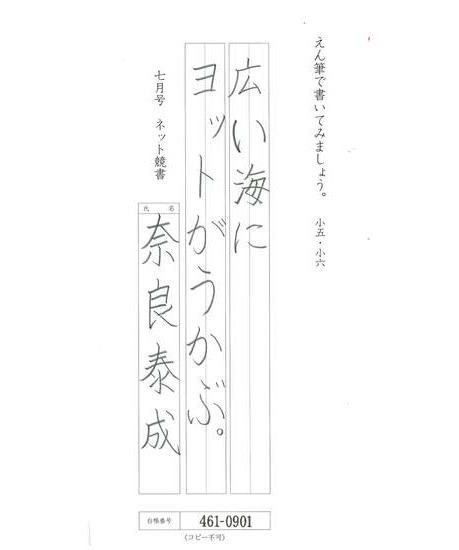 えん筆で書いてみましょう。 小五・小六
広い海に
ヨットがうかぶ。
七月号 ネット競書
氏 名
奈良泰成
台帳番号 461-0901
(コピー不可)